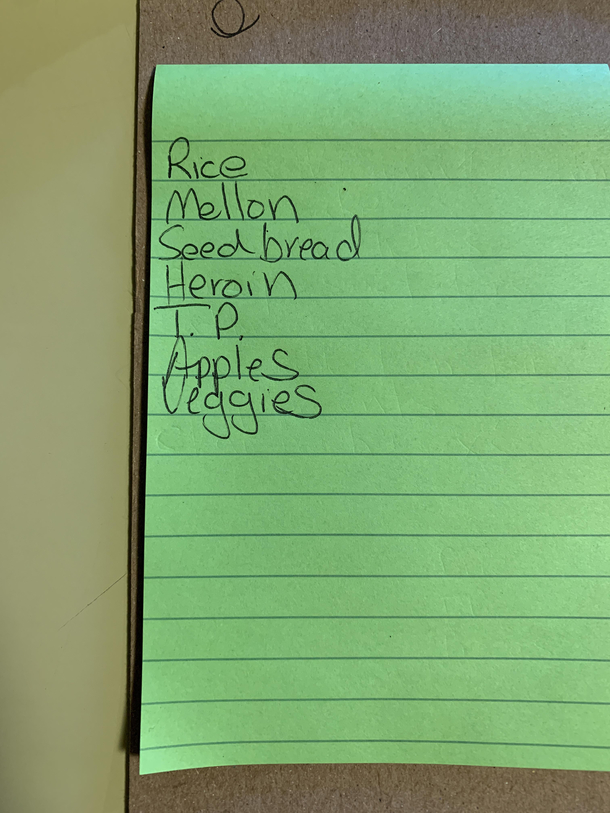 Rice
Mellon
Seedbread
Heroin
T.P.
Apples
Veggies